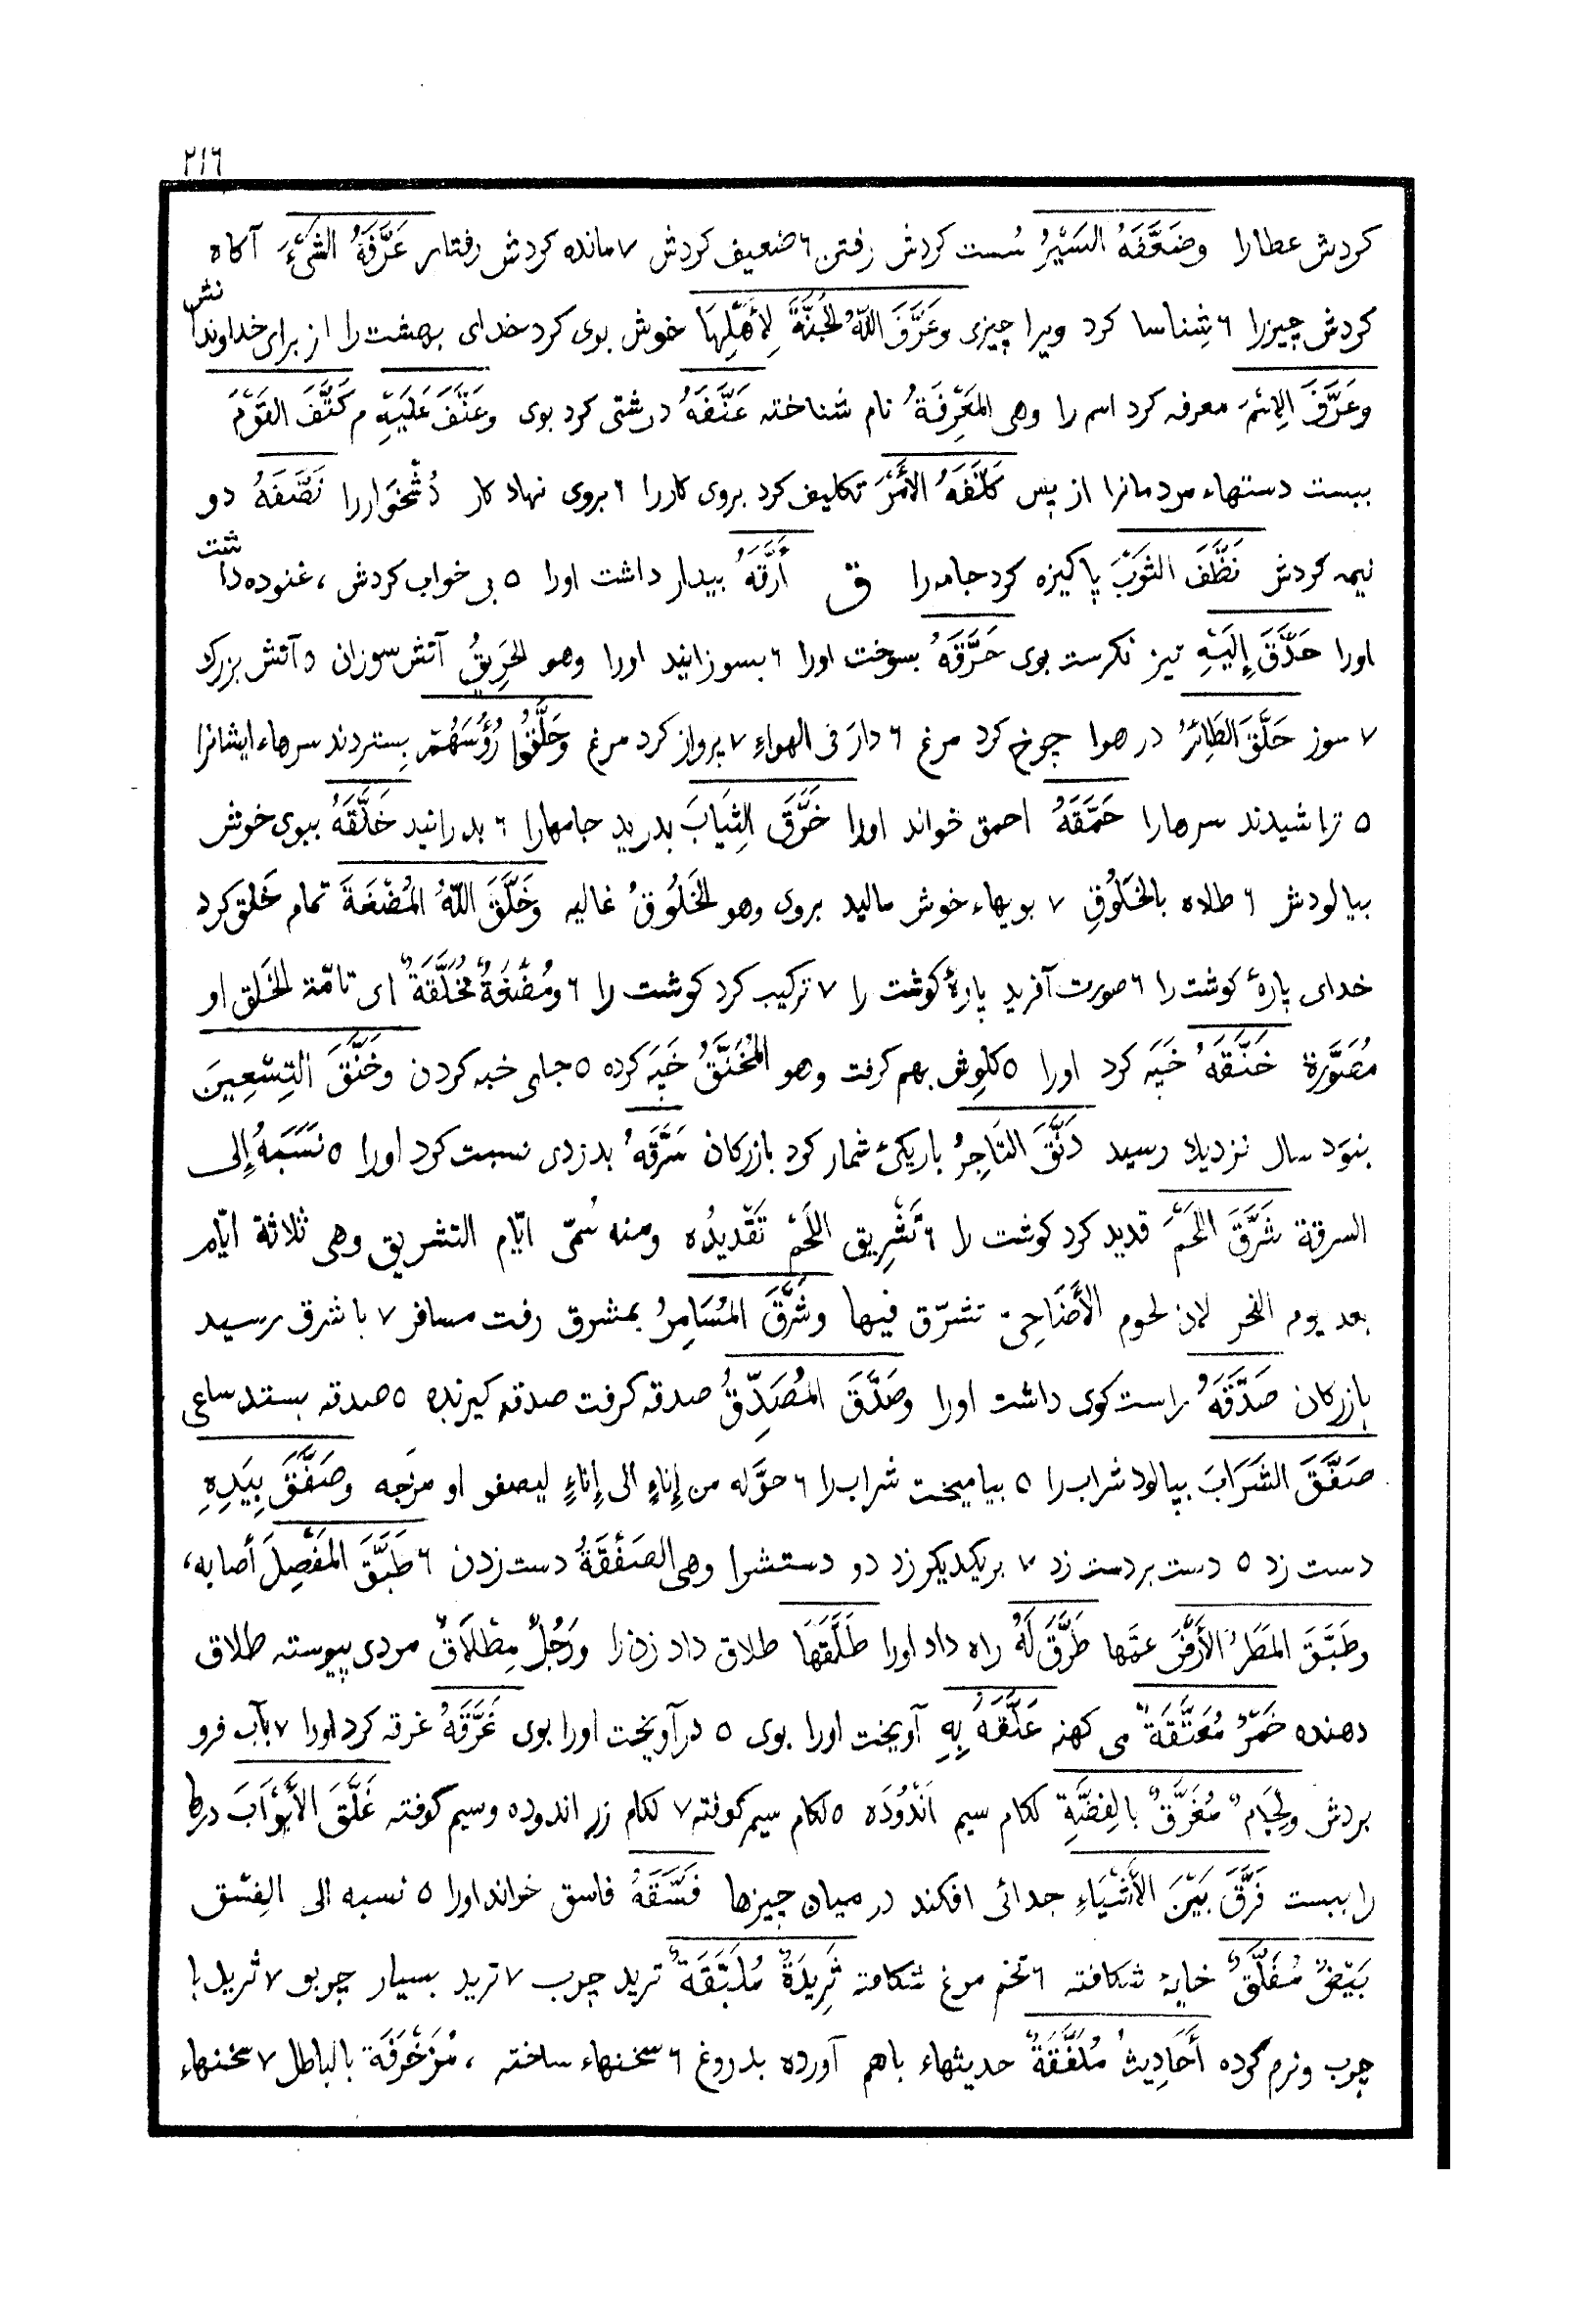 ٢١٦
کردش عطارا وضَعَّفَهُ السَيْرُ سُست کردش رفتن ٦ ضعیف کردش ٧ مانده کردش رفتار عَرَّفَهُ الشَيْءَ آکاه
کردش چیزرا ٦ شِناسا کرد ویرا چیزی وعَرَّفَ اللّهُ الجَنَّةَ لِأَهْلِهَا خوش بوی کرد خدای بهشت را از برای خداوندانش
وعَرَّفَ الِاسْمَ معرفه کرد اسم را وهی المَعْرِفَةُ نام شناخته عَنَّفَهُ درشتی کرد بوی وعَنَّفَ عَلَيْهِ م كَتَّفَ القَوْمَ
ببست دستهاء مردمانرا از پس كَلَّفَهُ الأَمْرَ تکلیف کرد بروی کاررا ٦ بروی نهاد کار دُشْخوَاررا نَصَّفَهُ دو
نیمه کردش نَظَّفَ الثَوْبَ پاکیزه کرد جامه را ق أَرَّقَهُ بیدار داشت اورا ٥ بی خواب کردش ، غنوده داشت
اورا حَدَّقَ إِلَيْهِ تیز نکرست بوی حَرَّقَهُ بسوخت اورا ٦ بسوزانید اورا وهو الحَرِيقُ آتش سوزان و آتش بزرك
٧ سوز حَلَّقَ الطَائِرُ در هوا چرخ کرد مرغ ٦ دارَ فی الهواءِ ٧ پرواز کرد مرغ وحَلَّقُوا رُؤُسَهُمْ بِستردند سرهاء ایشانرا
٥ تراشیدند سرهارا حَمَّقَهُ احمق خواند اورا خَرَّقَ الثِيَابَ بدرید جامهارا ٦ بدرانید خَلَّقَهُ ببوی خوش
بیالودش ٦ طلاه بالخَلُوقِ ٧ بویهاء خوش مالید بروی وهو الخَلُوقُ غالیه وخَلَّقَ اللّهُ المُضْغَةَ تمام خلق کرد
خدای پارهٔ کوشت را ٦ صورت آفرید پارهٔ کوشت را ٧ ترکیب کرد کوشت را ٦ ومُضْغَةٌ مُخَلَّقَةٌ ای تامّة الخَلق او
مُصَوَّرة خَنَّقَهُ خَپَه کرد اورا ٥ کلوش بهم کرفت وهو المُخَنَّقُ خَپَه کرده ٥ جای خبه کردن وخَنَّقَ التِسْعِينَ
بنوَد سال نزدیك رسید دَنَّقَ التَاجِرُ باریکیٔ شمار کرد بازرکان سَرَّقَهُ بدزدی نسبت کرد اورا ٥ نَسَبَهُ إِلى
السرقة شَرَّقَ اللَحْمَ قدید کرد کوشت را ٦ تَشْرِيق اللَحْم تَقْدیدُه ومنه سُمّی ایّام التشریق وهی ثلاثة ایّام
بعد یوم النحر لان لحوم الأَضَاحِيّ تشرّق فیها وشَرَّقَ المُسَافِرُ بمشرق رفت مسافر ٧ با شرق رسید
بازرکان صَدَّقَهُ راست کوی داشت اورا وصَدَّقَ المُصَدِّقُ صدقه کرفت صدقه کیرنده ٥ صدقه بستد ساعی
صَفَّقَ الشَرَابَ بپالود شراب را ٥ بیامیخت شراب را ٦ حوَّله من إِناءٍ الی إِناءٍ لیصفو او مزَجه وصَفَّقَ بِيَدِهِ
دست زد ٥ دست بر دست زد ٧ بریکدیکر زد دو دستشرا وهی الصَفْقَةُ دست زدن ٦ طَبَّقَ المَفْصِلَ أصابه ،
وطَبَّقَ المَطَرُ الأَرْضَ عمّها طَرَّقَ لَهُ راه داد اورا طَلَّقَهَا طلاق داد زن را ورَجُلٌ مِطْلَاقٌ مردی پیوسته طلاق
دهنده خَمْرٌ مُعَتَّقَةٌ می کهنه عَلَّقَهُ بِهِ آویخت اورا بوی ٥ درآویخت اورا بوی غَرَّقَهُ غرقه کرد اورا ٧ بآب فرو
بردش ولِجَامٌ مُغَرَّقٌ بالفِضَّةِ لکام سیم اَنْدُودَه ٥ لکام سیم کوفته ٧ لکام زر اندوده وسیم کوفته غَلَّقَ الأَبْوَابَ درها
را ببست فَرَّقَ بَيْنَ الأَشْيَاءِ جدائی افکند در میان چیزها فَسَّقَهُ فاسق خواند اورا ٥ نسبه الی الفِسْق
بَيْضٌ مُفَلَّقٌ خایهٔ شکافته ٦ تخم مرغ شکافته ثَرِيدَةٌ مُلَبَّقَةٌ ترید چرب ٧ ترید بسیار چربو ٧ ثرید با
چرب ونرم کرده أَحَادِيثُ مُلَفَّقَةٌ حدیثهاء باهم آورده بدروغ ٦ سخنهاء ساخته ، مُزَخْرَفَة بالباطل ٧ سخنهاء